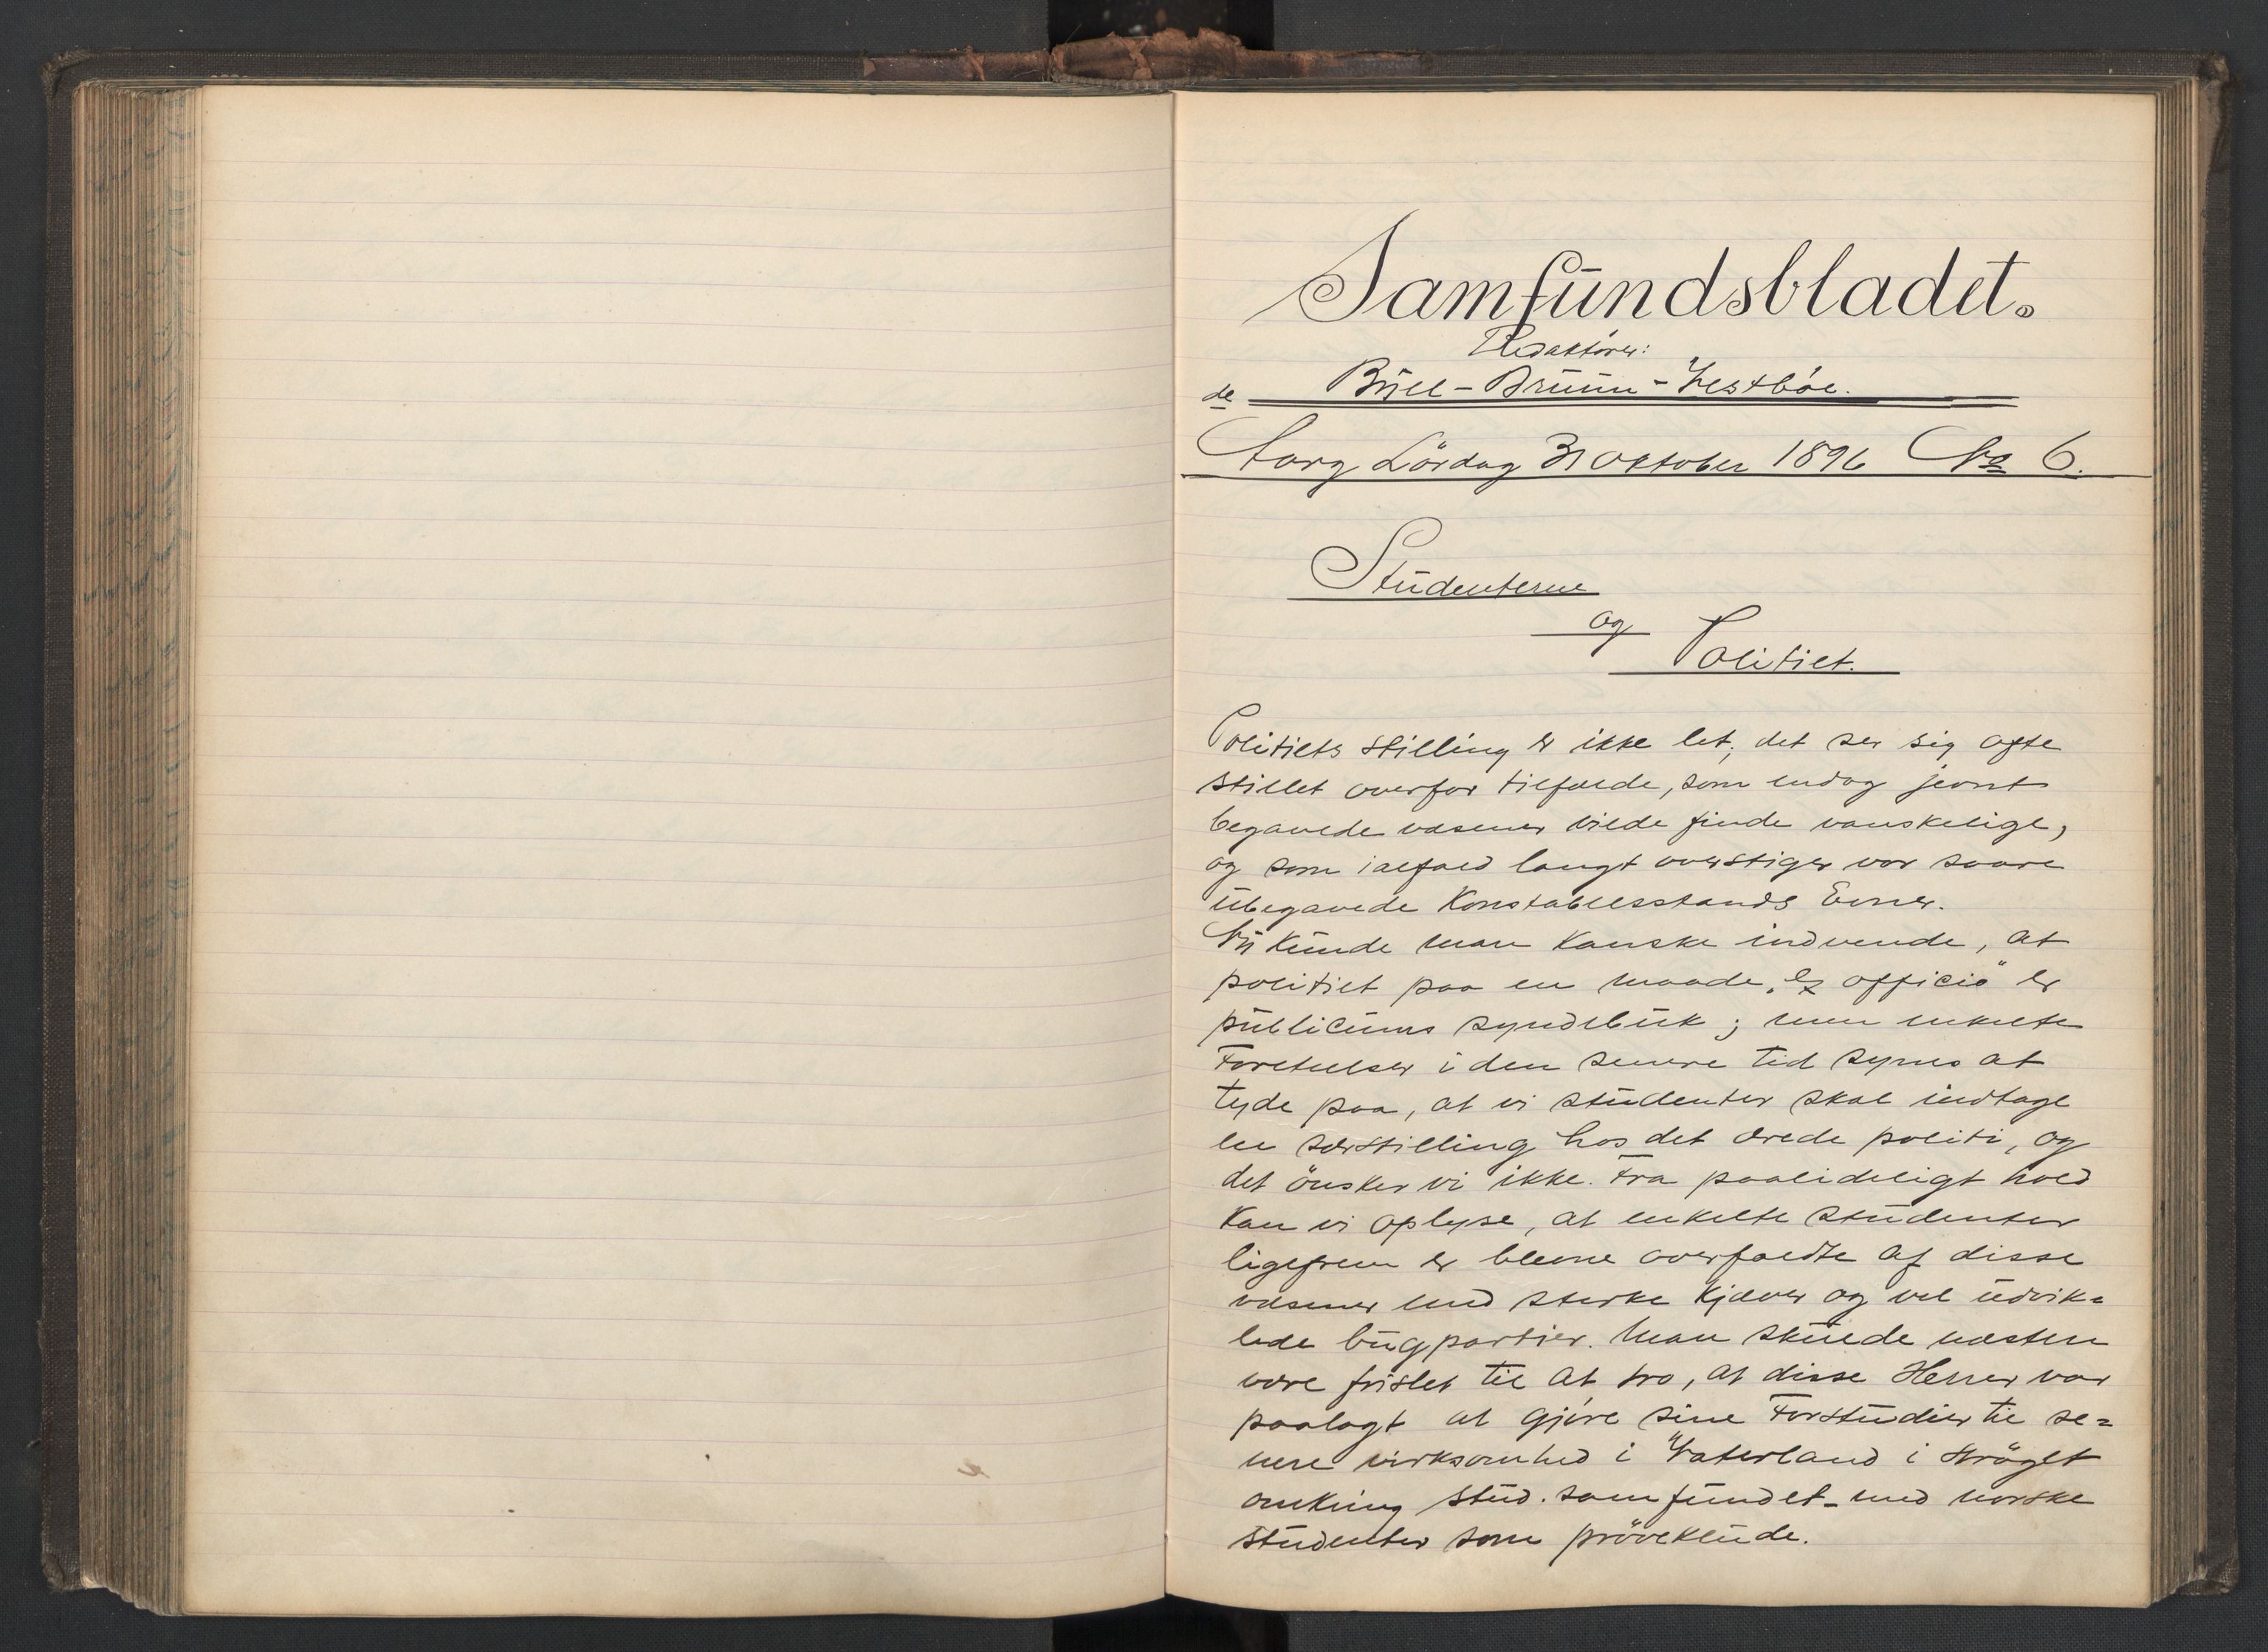 Samfundsbladet.
Redaktører:
de Bull - Bruun - Vestbøe.
Aarg Lördag 31 Oktober 1896 No 6.
Studenterne
og
Politiet.
Politiets stilling er ikke let; det ser sig ofte
stillet overfor tilfælde, som endog jevnt
begavede væsener vilde finde vanskelige,
og som ialfald langt overstiger vor saare
ubegavede Konstabelsstands Evner.
Nu kunde man kanske indvende, at
politiet paa en maade „ex officio" er
publicums syndebuk; men enkelte
Foreteelser i den senere tid synes at
tyde paa, at vi studenter skal indtage
en særstilling hos det ærede politi, og
det önsker vi ikke. Fra paalideligt hold
kan vi oplyse, at enkelte studenter
ligefrem er blevne overfaldte af disse
væsener med sterke kjæver og vel udvik=
lede bugpartier. Man skulde næsten
være fristet til at tro, at disse Herrer var
paalagt at gjöre sine Forstudier til se=
nere virksomhed i Vaterland i ströget
omkring stud. samfundet - med norske
studenter som pröveklude.